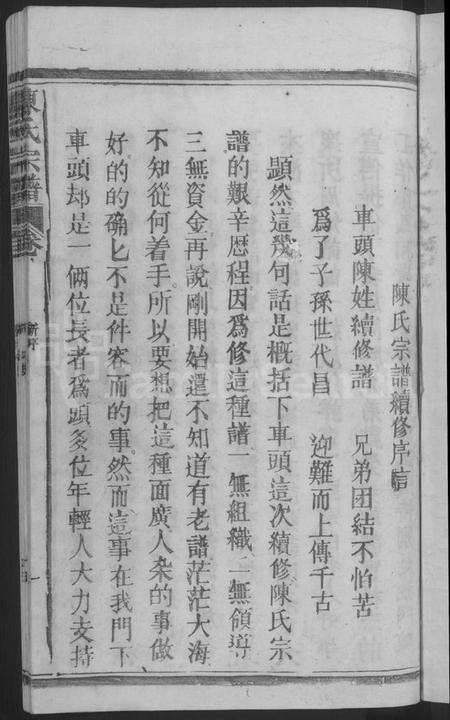 陳氏宗譜續修序言
車頭陳姓續修譜　兄弟团结不怕苦
爲了子孫世代昌　迎難而上傳千古
顯然這幾句話是概括下車頭這次續修陳氏宗
譜的艱辛歷程因爲修這種譜一無組織二無領導
三無資金再說剛開始還不知道有老譜茫茫大海
不知從何着手所以要想把這種面廣人杂的事做
好的的确匕不是件容而的事然而這事在我門下
車頭却是一倆位長者爲頭多位年輕人大力支持
陳氏宗譜